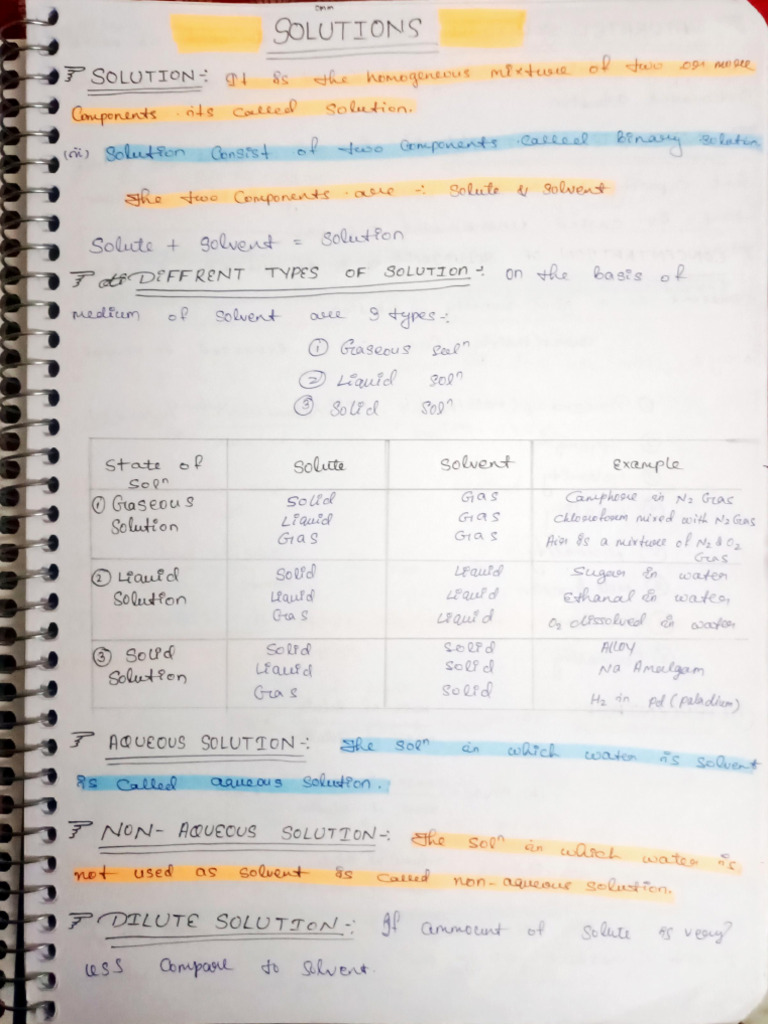 SOLUTIONS
SOLUTION:- It is the homogeneous mixture of two or more
Components its called Solution.
(ii) Solution Consist of two Components called binary solution
The two Components are :- Solute & Solvent
Solute + Solvent = Solution
DIFFRENT TYPES OF SOLUTION:- on the basis of
medium of solvent are 3 types-:
① Gaseous solⁿ
② Liquid solⁿ
③ Solid Solⁿ
State of Solⁿ Solute Solvent Example
① Gaseous Solution Solid Gas Camphore in N2 Gas
Liquid Gas Chloroform mixed with N2 Gas
Gas Gas Air is a mixture of N2 & O2 Gas
② Liquid Solution Solid Liquid Sugar in water
Liquid Liquid Ethanal in water
Gas Liquid O2 dissolved in water
③ Solid Solution Solid Solid Alloy
Liquid Solid Na Amalgam
Gas Solid H2 in Pd (Paladium)
AQUEOUS SOLUTION-: The Solⁿ in which water is solvent
is called aqueous solution.
NON-AQUEOUS SOLUTION-: The Solⁿ in which water is
not used as solvent is called non-aqueous solution.
DILUTE SOLUTION-: If ammount of solute is very
less Compare to solvent.